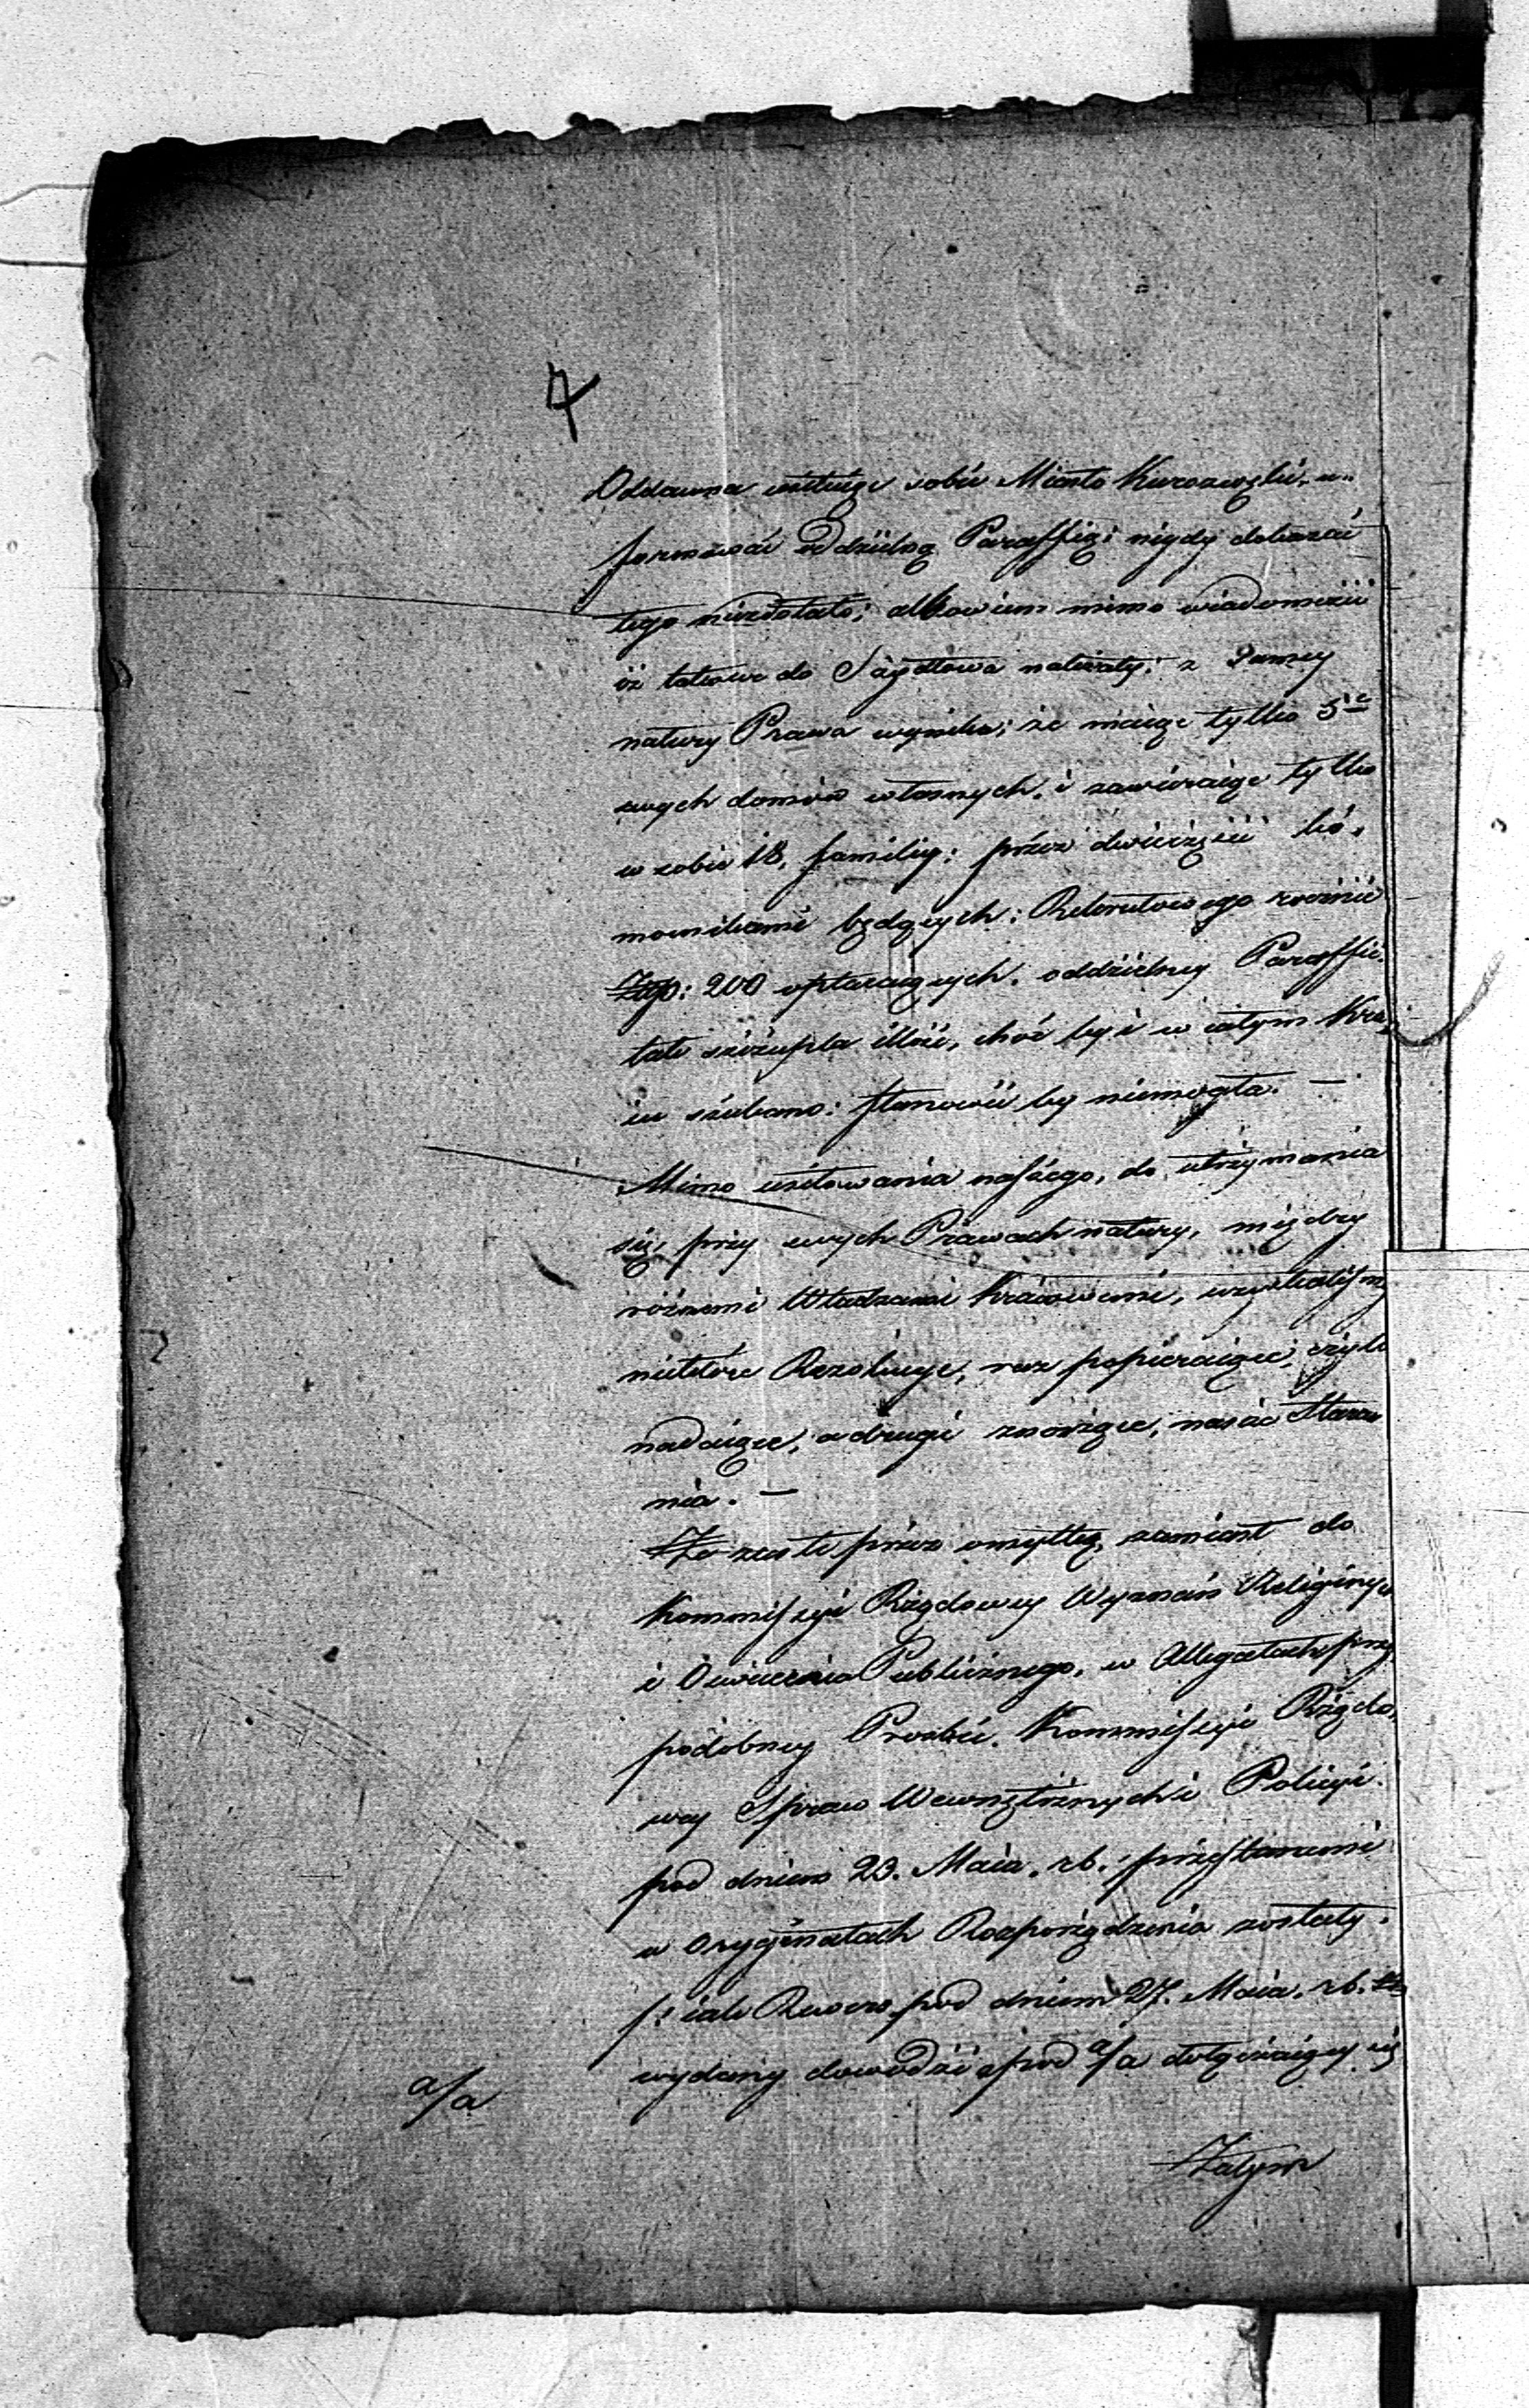 7
Oddawna usiłuiąc sobie Miasto Kurozwęki, u„
formować oddzielną Paraffią; nigdy dokazać
tego niezdołało; albowiem mimo wiadomości
iż takowe do Szydłowa należały; z samey
natury Prawa wynika; że maiąc tylko 5ć
swych domów własnych, i zawieraiąc tylko
w sobie 18, familiy; przez dwieczęści ko„
mornikami będących; Rekrutowego rocznie
Złp: 200 opłacaiących, oddzielney Paraffii
tak szczupła illość, choć by i w całym Kra„
iu szukano; stanowić by niemogła. —
Mimo usiłowania naszego, do utrzymania
się, przy swych Prawach natury, między
różnemi Władzami Kraiowemi, uzyskaliśmy
niektóre Rezolucye, raz popieraiące, czyli
nadaiące, a drugie znoszące, nasze Stara„
nia. —
Że zaś te przez omyłkę, zamiast do
Kommissyi Rządowey Wyznań Religinych
i Oświecenia Publicznego, w Allegatach przy
podobney Prośbie, Kommissyi Rządo„
wey Spraw Wewnętrznych i Policyi
pod dniem 23. Maia, rb. przesłanemi
w Oryginałach Rozporządzenia zostały.
iak Rewers pod dniem 27. Maia. rb.
wydany dowodzi pod a/a dołączaiący się
a/a
Zatym